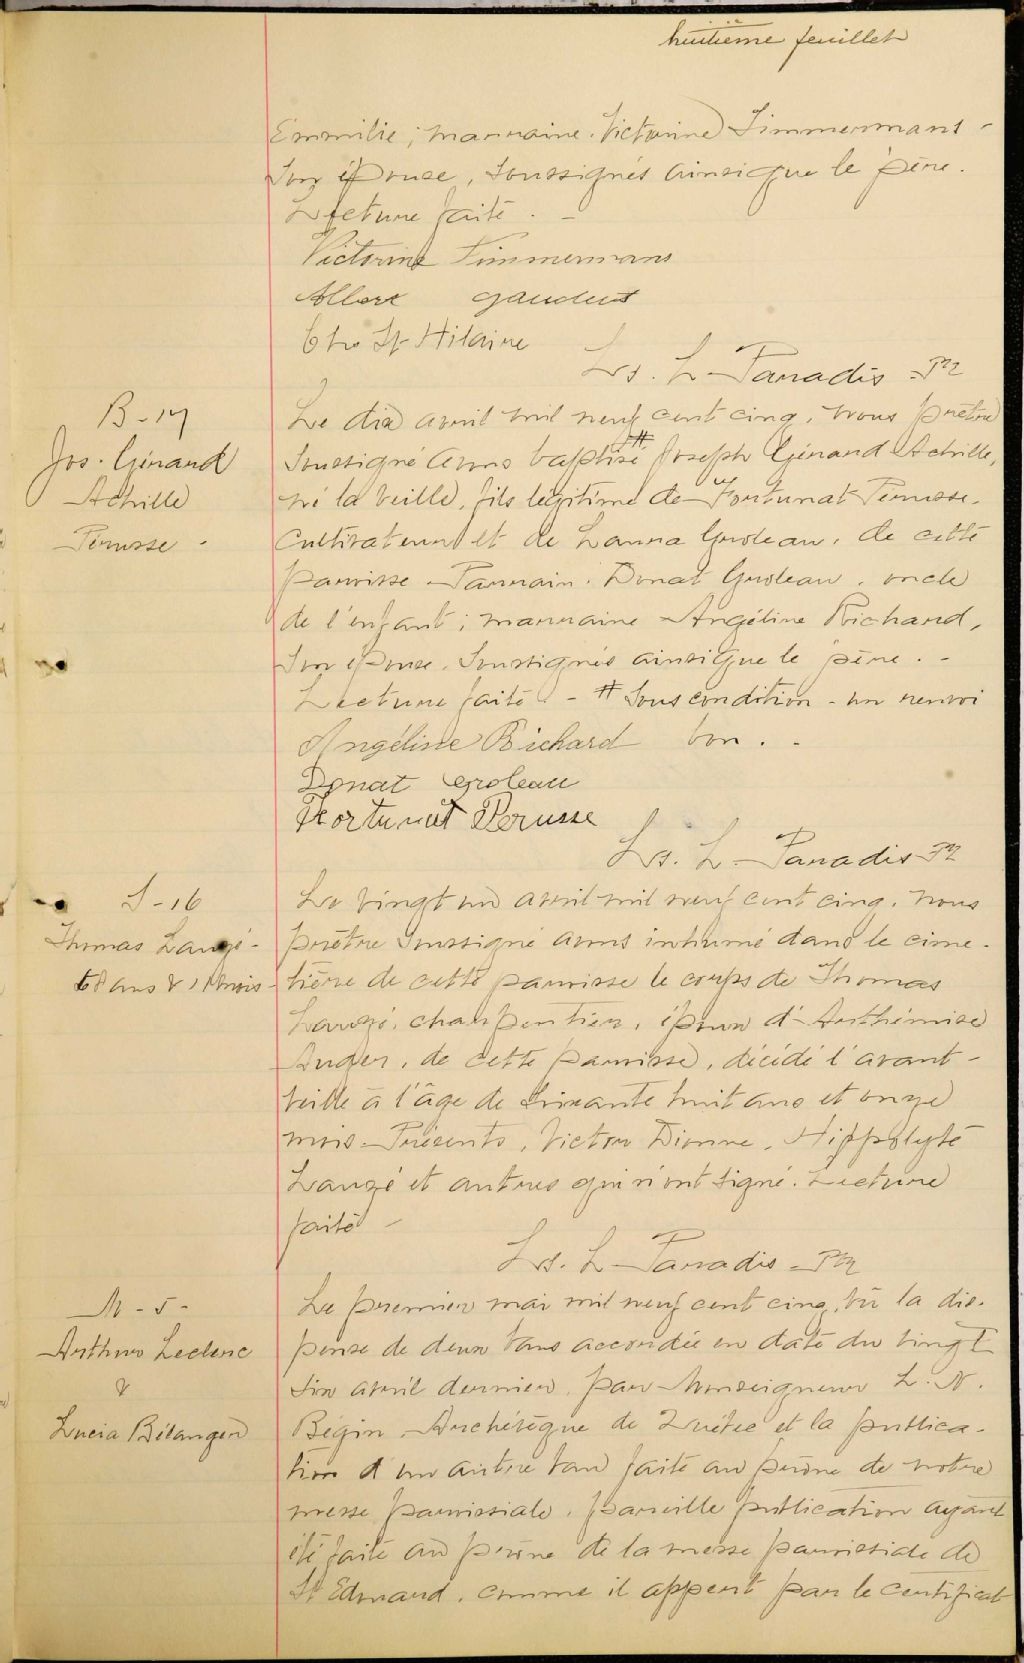 huitième feuillet
Emmilie; marraine. Victorine Timmermans -
son épouse, soussignés ainsi que le père.
Lecture faite. -
Victorine Timmermans
Albert Gaudent
Chs St Hilaire
Ls. L. Paradis - Ptr
B - 17
Jos. Gérard
Achille
Perusse -
Le dix avril mil neuf cent cinq, nous prêtre
soussigné avons baptisé # Joseph Gérard Achille,
né la veille, fils légitime de Fortunat Perusse,
cultivateur et de Laura Groleau, de cette
paroisse - Parrain. Donat Groleau, oncle
de l'enfant; marraine Angéline Richard,
son épouse, soussignés ainsi que le père. -
Lecture faite - # Sous condition - un renvoi
Angéline Richard bon. -
Donat Groleau
Fortunat Perusse
Ls. L - Paradis - Ptr
S - 16
Thomas Lauzé -
68 ans & 11 mois -
Le vingt un avril mil neuf cent cinq, nous
prêtre soussigné avons inhumé dans le cime-
tière de cette paroisse le corps de Thomas
Lauzé, charpentier, époux d'Arthémise
Auger, de cette paroisse, décédé l'avant-
veille à l'âge de soixante huit ans et onze
mois - Présents, Victor Dionne, Hippolyte
Lauzé et autres qui n'ont signé. Lecture
faite -
Ls. L - Paradis - Ptr
M - 5 -
Arthur Leclerc
&
Lucia Bélanger
Le premier mai mil neuf cent cinq, vu la dis-
pense de deux bans accordée en date du vingt
six avril dernier, par Monseigneur L. N.
Bégin Archévêque de Québec et la publica-
tion d'un autre ban faite au prône de notre
messe paroissiale, pareille publication ayant
été faite au prône de la messe paroissiale de
St Edouard, comme il appert par le certificat